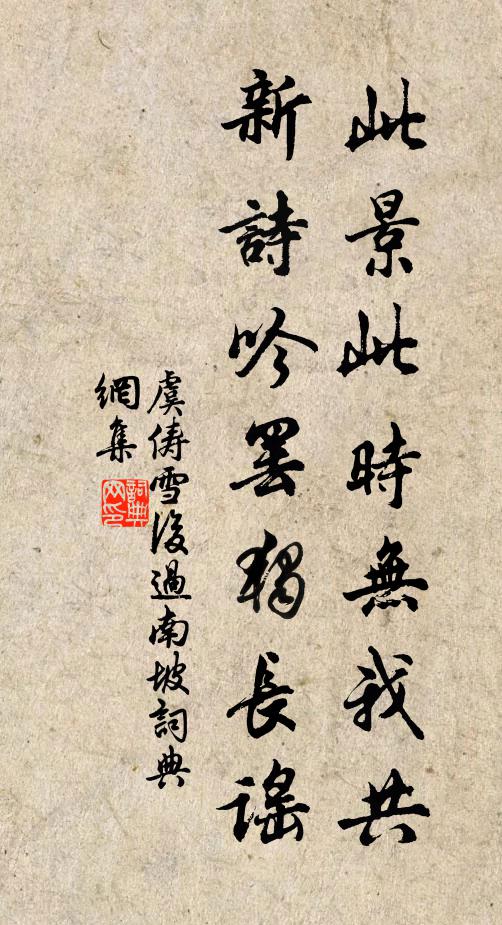 此景此時無我共
新詩吟罢獨長謠
虞儔雪後過南坡詞典
網集
詞典
网印